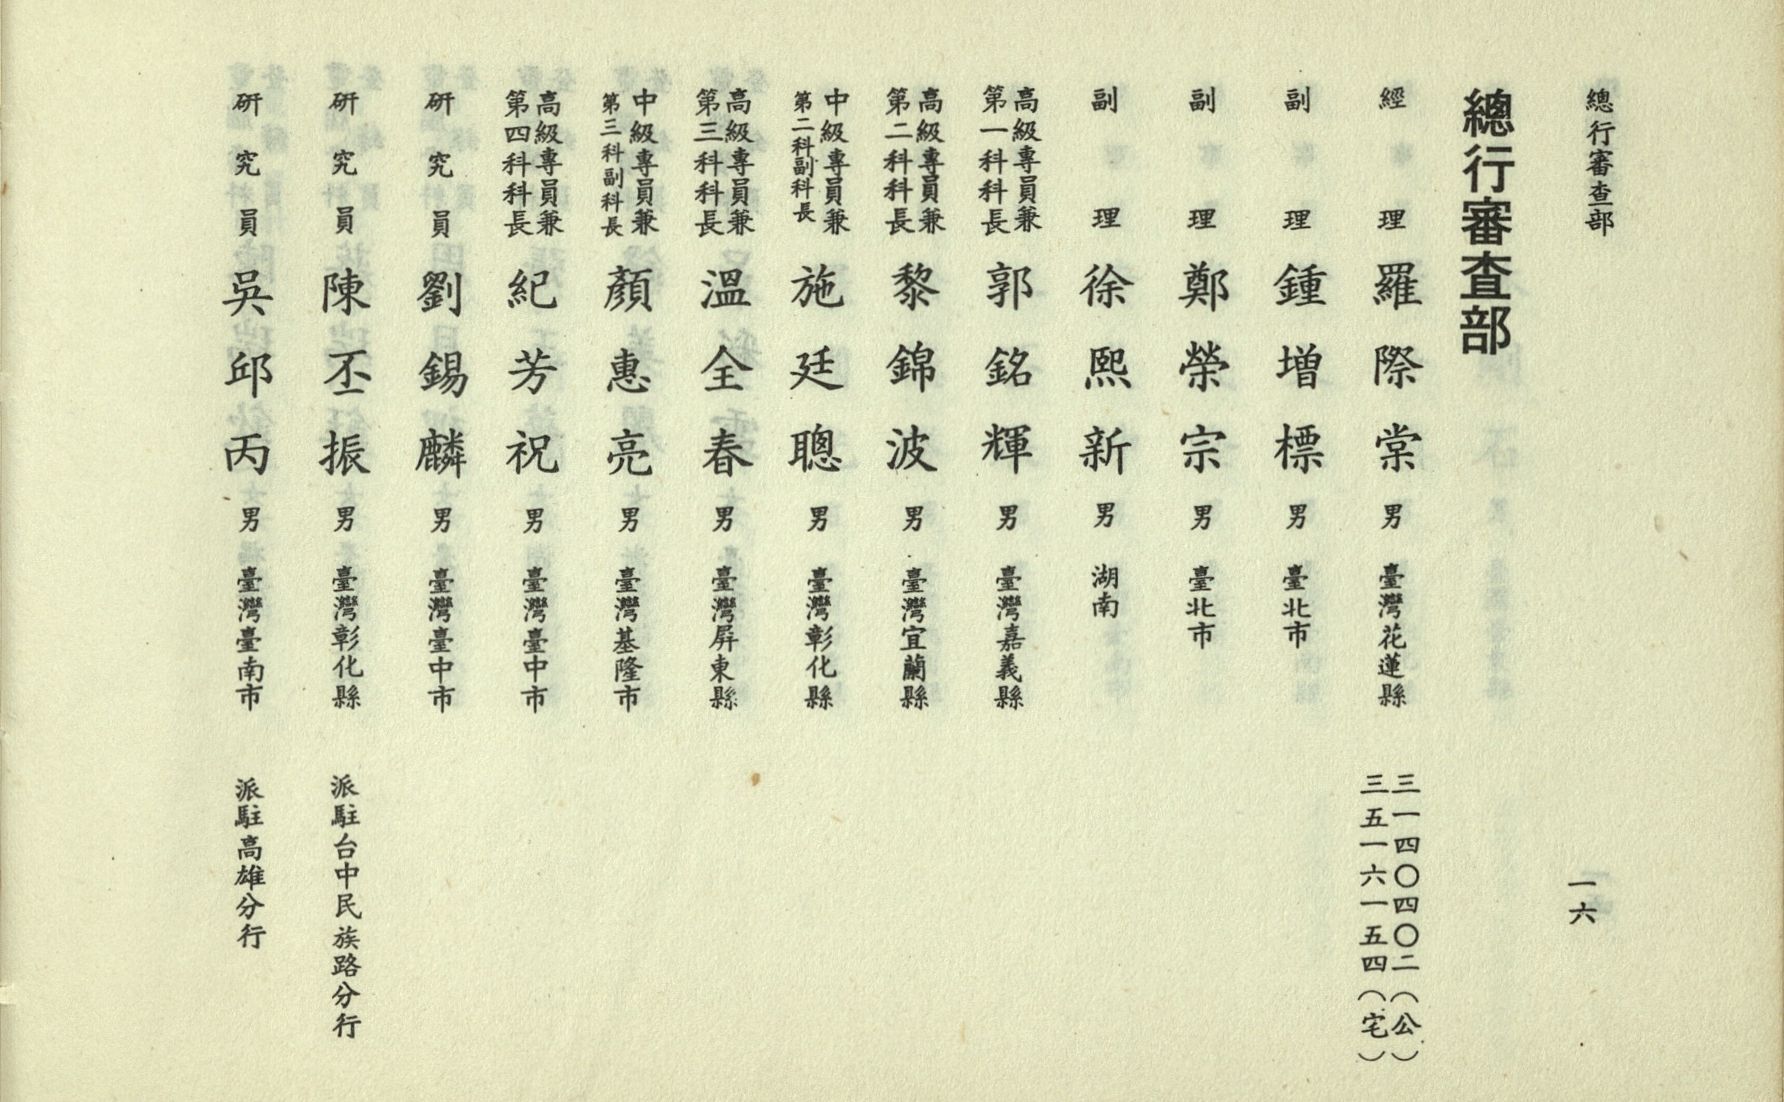 總行審查部
一六
總行審查部
經理 羅際棠 男 臺灣花蓮縣 三一四〇四〇二（公）
三五一六一五四（宅）
副理 鍾增標 男 臺北市
副理 鄭榮宗 男 臺北市
副理 徐熙新 男 湖南
高級專員兼第一科科長 郭銘輝 男 臺灣嘉義縣
高級專員兼第二科科長 黎錦波 男 臺灣宜蘭縣
中級專員兼第二科副科長 施廷聰 男 臺灣彰化縣
高級專員兼第三科科長 溫全春 男 臺灣屏東縣
中級專員兼第三科副科長 顏惠亮 男 臺灣基隆市
高級專員兼第四科科長 紀芳祝 男 臺灣臺中市
研究員 劉錫麟 男 臺灣臺中市
研究員 陳丕振 男 臺灣彰化縣 派駐台中民族路分行
研究員 吳邱丙 男 臺灣臺南市 派駐高雄分行